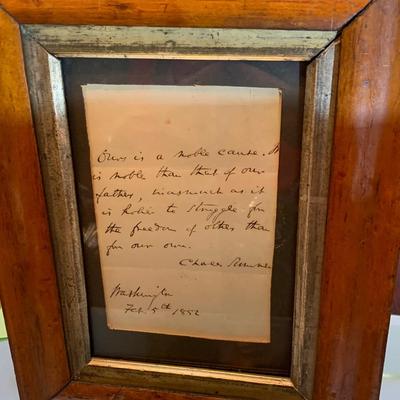 Ours is a noble cause. It
is noble than that of our
father, inasmuch as it
is holier to struggle for
the freedom of other than
for our own.
Charles Sumner
Washington
Feb. 5th 1852